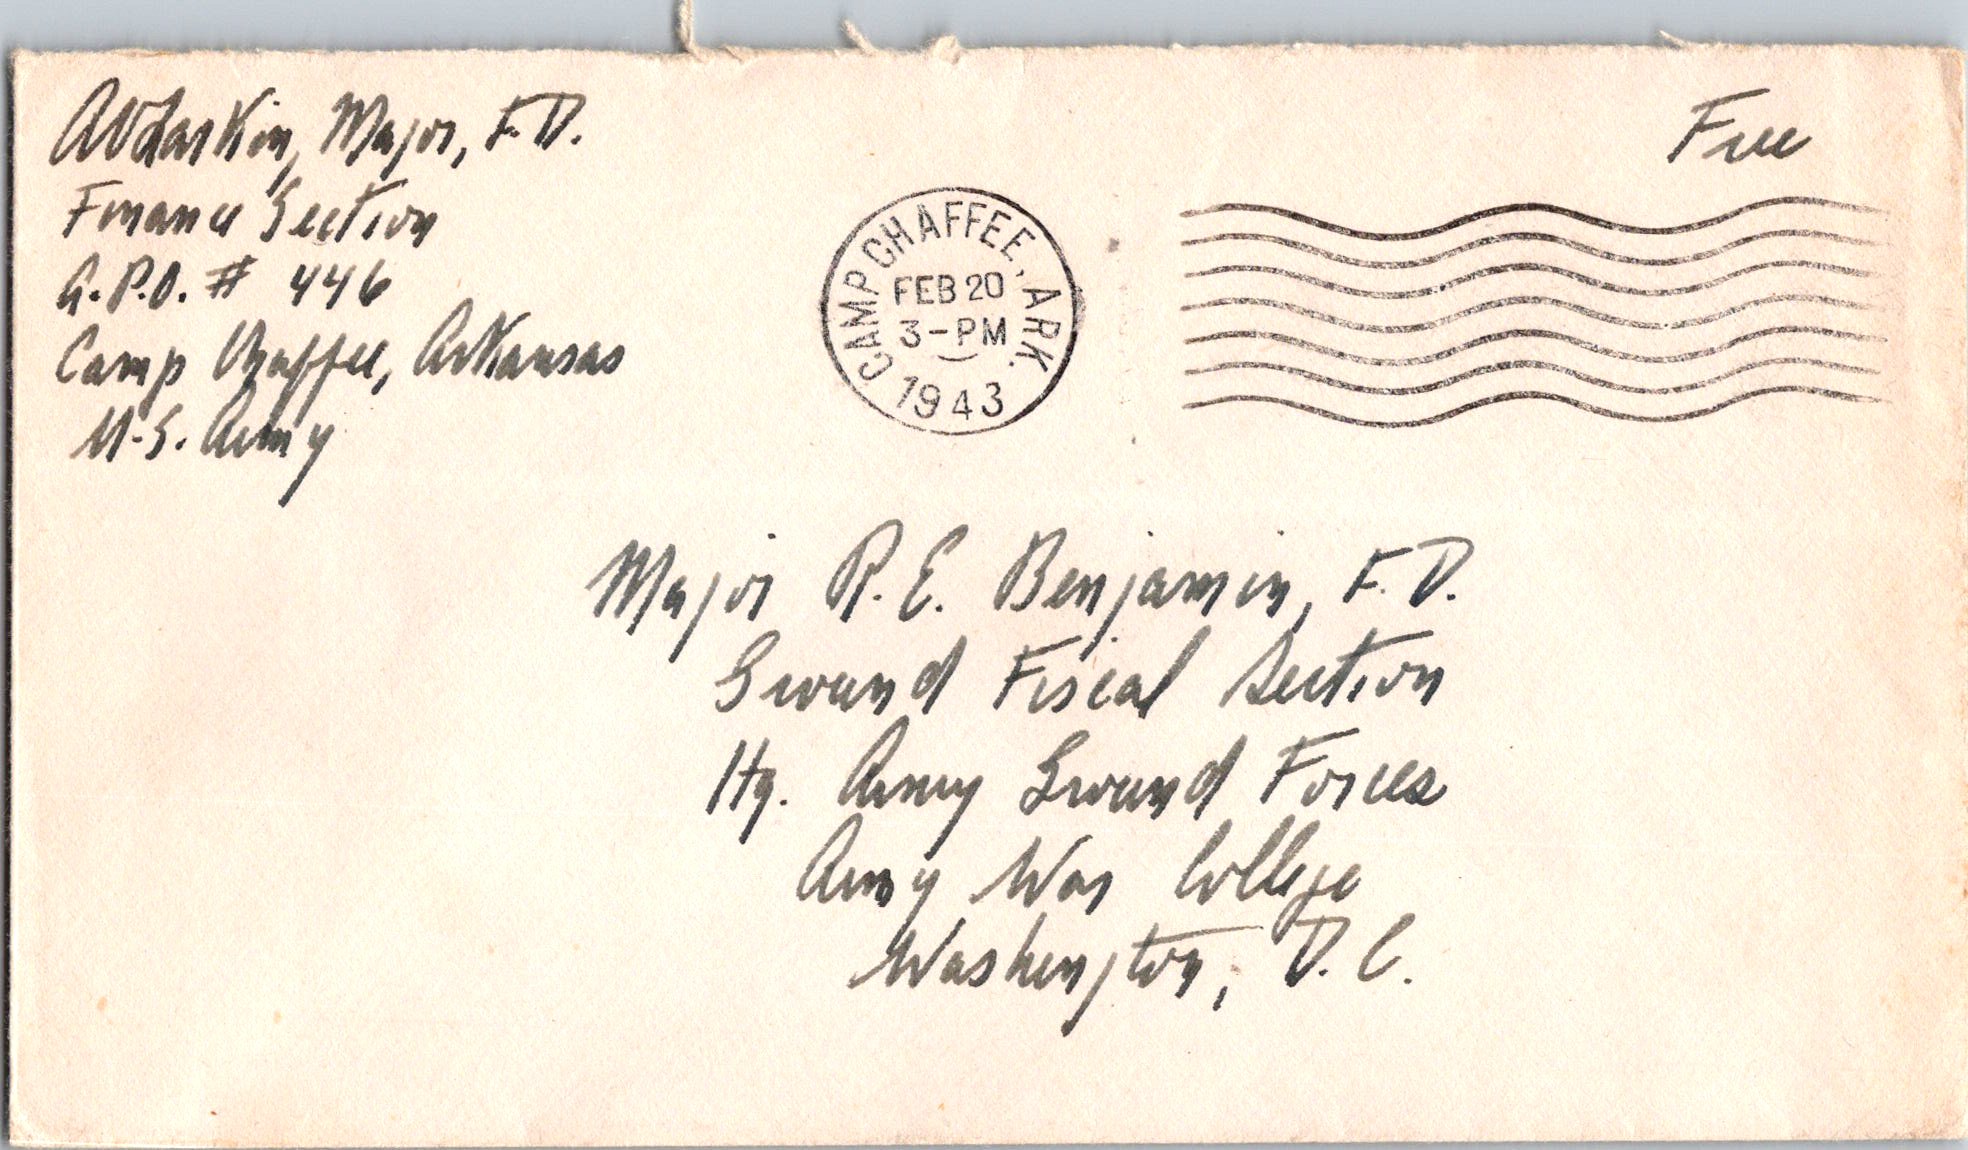 AV Larkin, Major, F.D.
Finance Section
A.P.O. # 446
Camp Chaffee, Arkansas
U.S. Army
Free
CAMP CHAFFEE, ARK.
FEB 20
3-PM
1943
Major R. E. Benjamin, F.D.
Ground Fiscal Section
Hq. Army Ground Forces
Army War College
Washington, D.C.